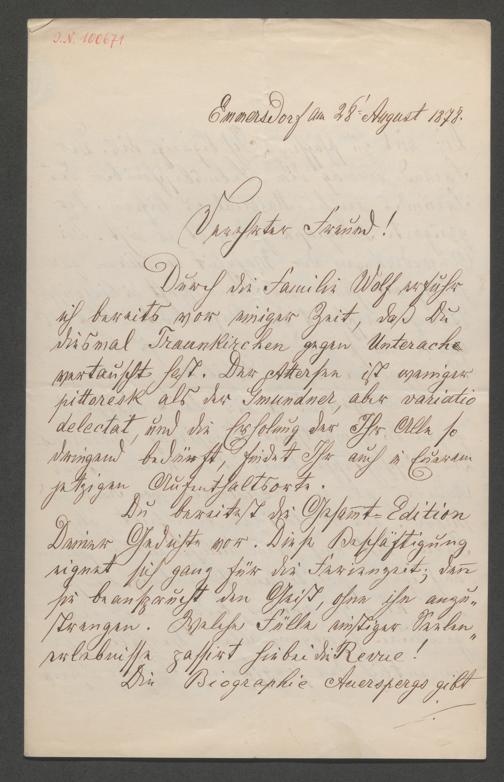 J. N. 100671
Emmersdorf am 28t August 1878.
Verehrter Freund!
Durch die Familie Wolf erfuhr
ich bereits vor einiger Zeit, daß Du
diesmal Traunkirchen gegen Unterach
vertauscht hast. Der Attersee ist weniger
pittoresk als der Gmundner, aber variatio
delectat, und die Erholung der Ihr Alle so
dringend bedürft, findet Ihr auch in Euerem
jetzigen Aufenthaltsorte.
Du bereitest die Gesammt-Edition
Deiner Gedichte vor. Diese Beschäftigung
eignet sich ganz für die Ferienzeit; denn
sie beansprucht den Geist, ohne ihn anzu-
strengen. Welche Fülle einstiger Seelen-
erlebnisse passirt hiebei die Revue!
Die Biographie Auerspergs gibt